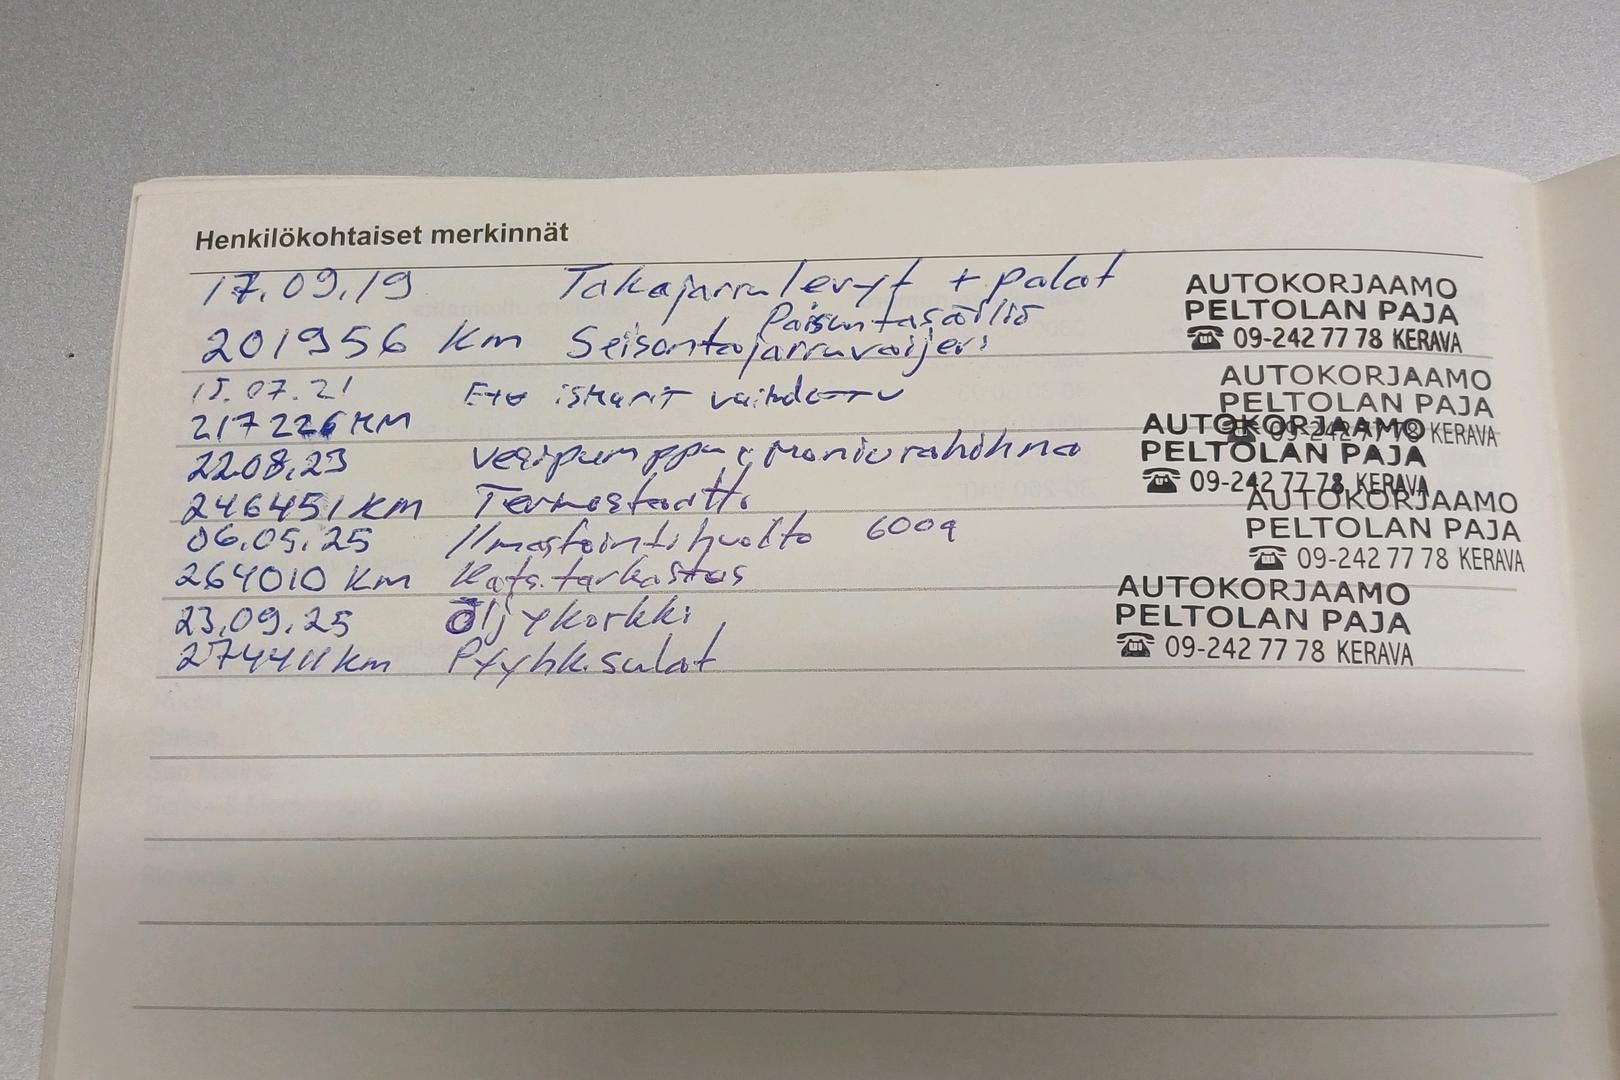 Henkilökohtaiset merkinnät
17.09.19 Takajarrulevyt + palat
Paisuntasäiliö
201956 Km Seisontajarruvaijeri
AUTOKORJAAMO
PELTOLAN PAJA
☎ 09-242 77 78 KERAVA
15.07.21 Etu iskarit vaihdettu
217226 KM
AUTOKORJAAMO
PELTOLAN PAJA
☎ 09-242 77 78 KERAVA
22.08.23 Vesipumppu, moniurahihna
246451 KM Termostaatti
AUTOKORJAAMO
PELTOLAN PAJA
☎ 09-242 77 78 KERAVA
06.05.25 Ilmastointihuolto 600g
264010 Km Kats.tarkastus
AUTOKORJAAMO
PELTOLAN PAJA
☎ 09-242 77 78 KERAVA
23.09.25 Öljykorkki
274411 km Pyyhk.sulat
AUTOKORJAAMO
PELTOLAN PAJA
☎ 09-242 77 78 KERAVA